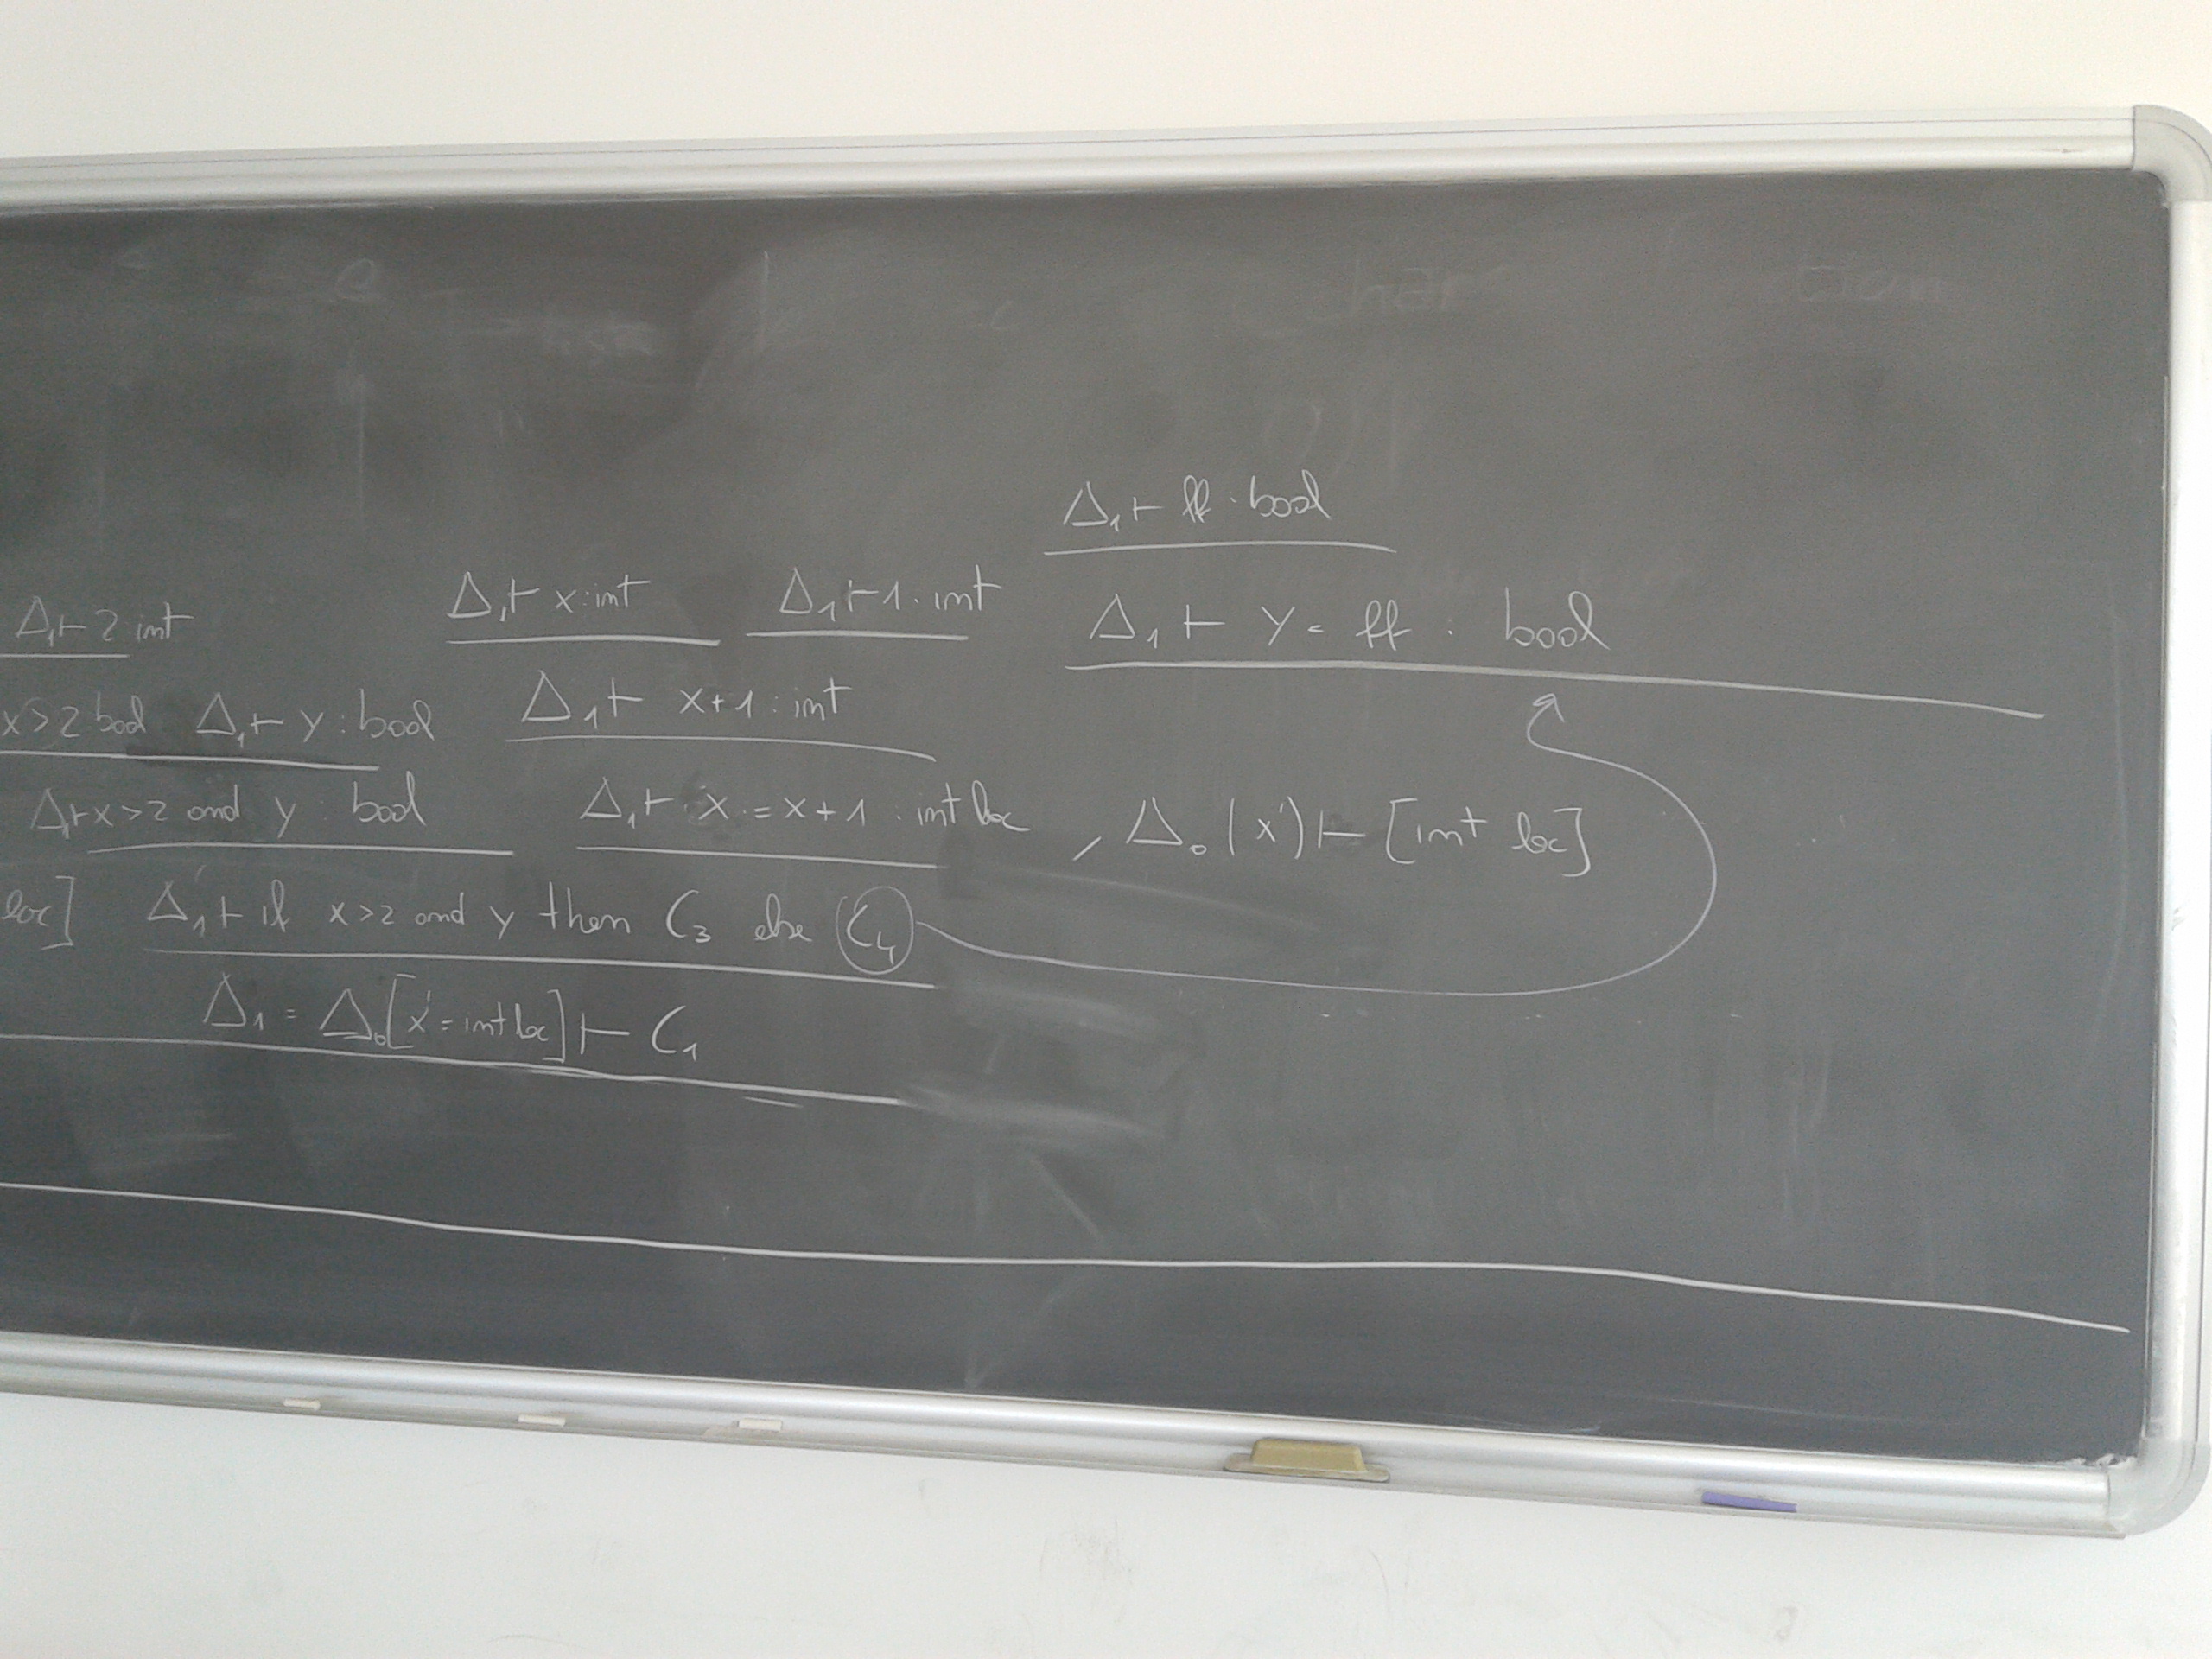 Δ₁ ⊢ ff : bool
Δ₁ ⊢ 2 int    Δ₁ ⊢ x : int    Δ₁ ⊢ 1 . int    Δ₁ ⊢ y = ff : bool
x > 2 bool    Δ₁ ⊢ y : bool    Δ₁ ⊢ x+1 : int
Δ₁ ⊢ x > 2 and y : bool    Δ₁ ⊢ x := x+1 . int loc , Δ₀(x) ⊢ [int loc]
loc]    Δ₁ ⊢ if x > 2 and y then C₃ else C₄
Δ₁ = Δ₀[x = int loc] ⊢ C₁